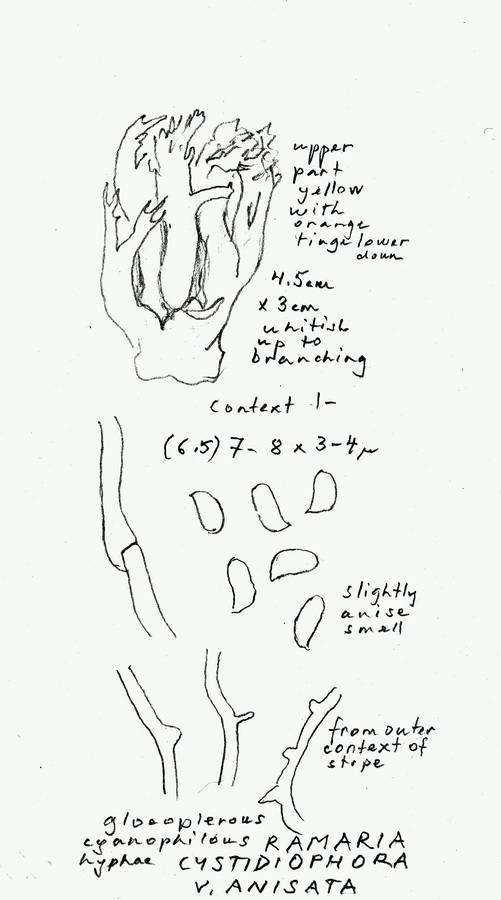 upper
part
yellow
with
orange
tinge lower
down
4.5cm
x 3cm
whitish
up to
branching
context 1-
(6.5) 7- 8 x 3-4μ
slightly
anise
smell
from outer
context of
stipe
gloeoplerous
cyanophilous
hyphae
RAMARIA
CYSTIDIOPHORA
V. ANISATA